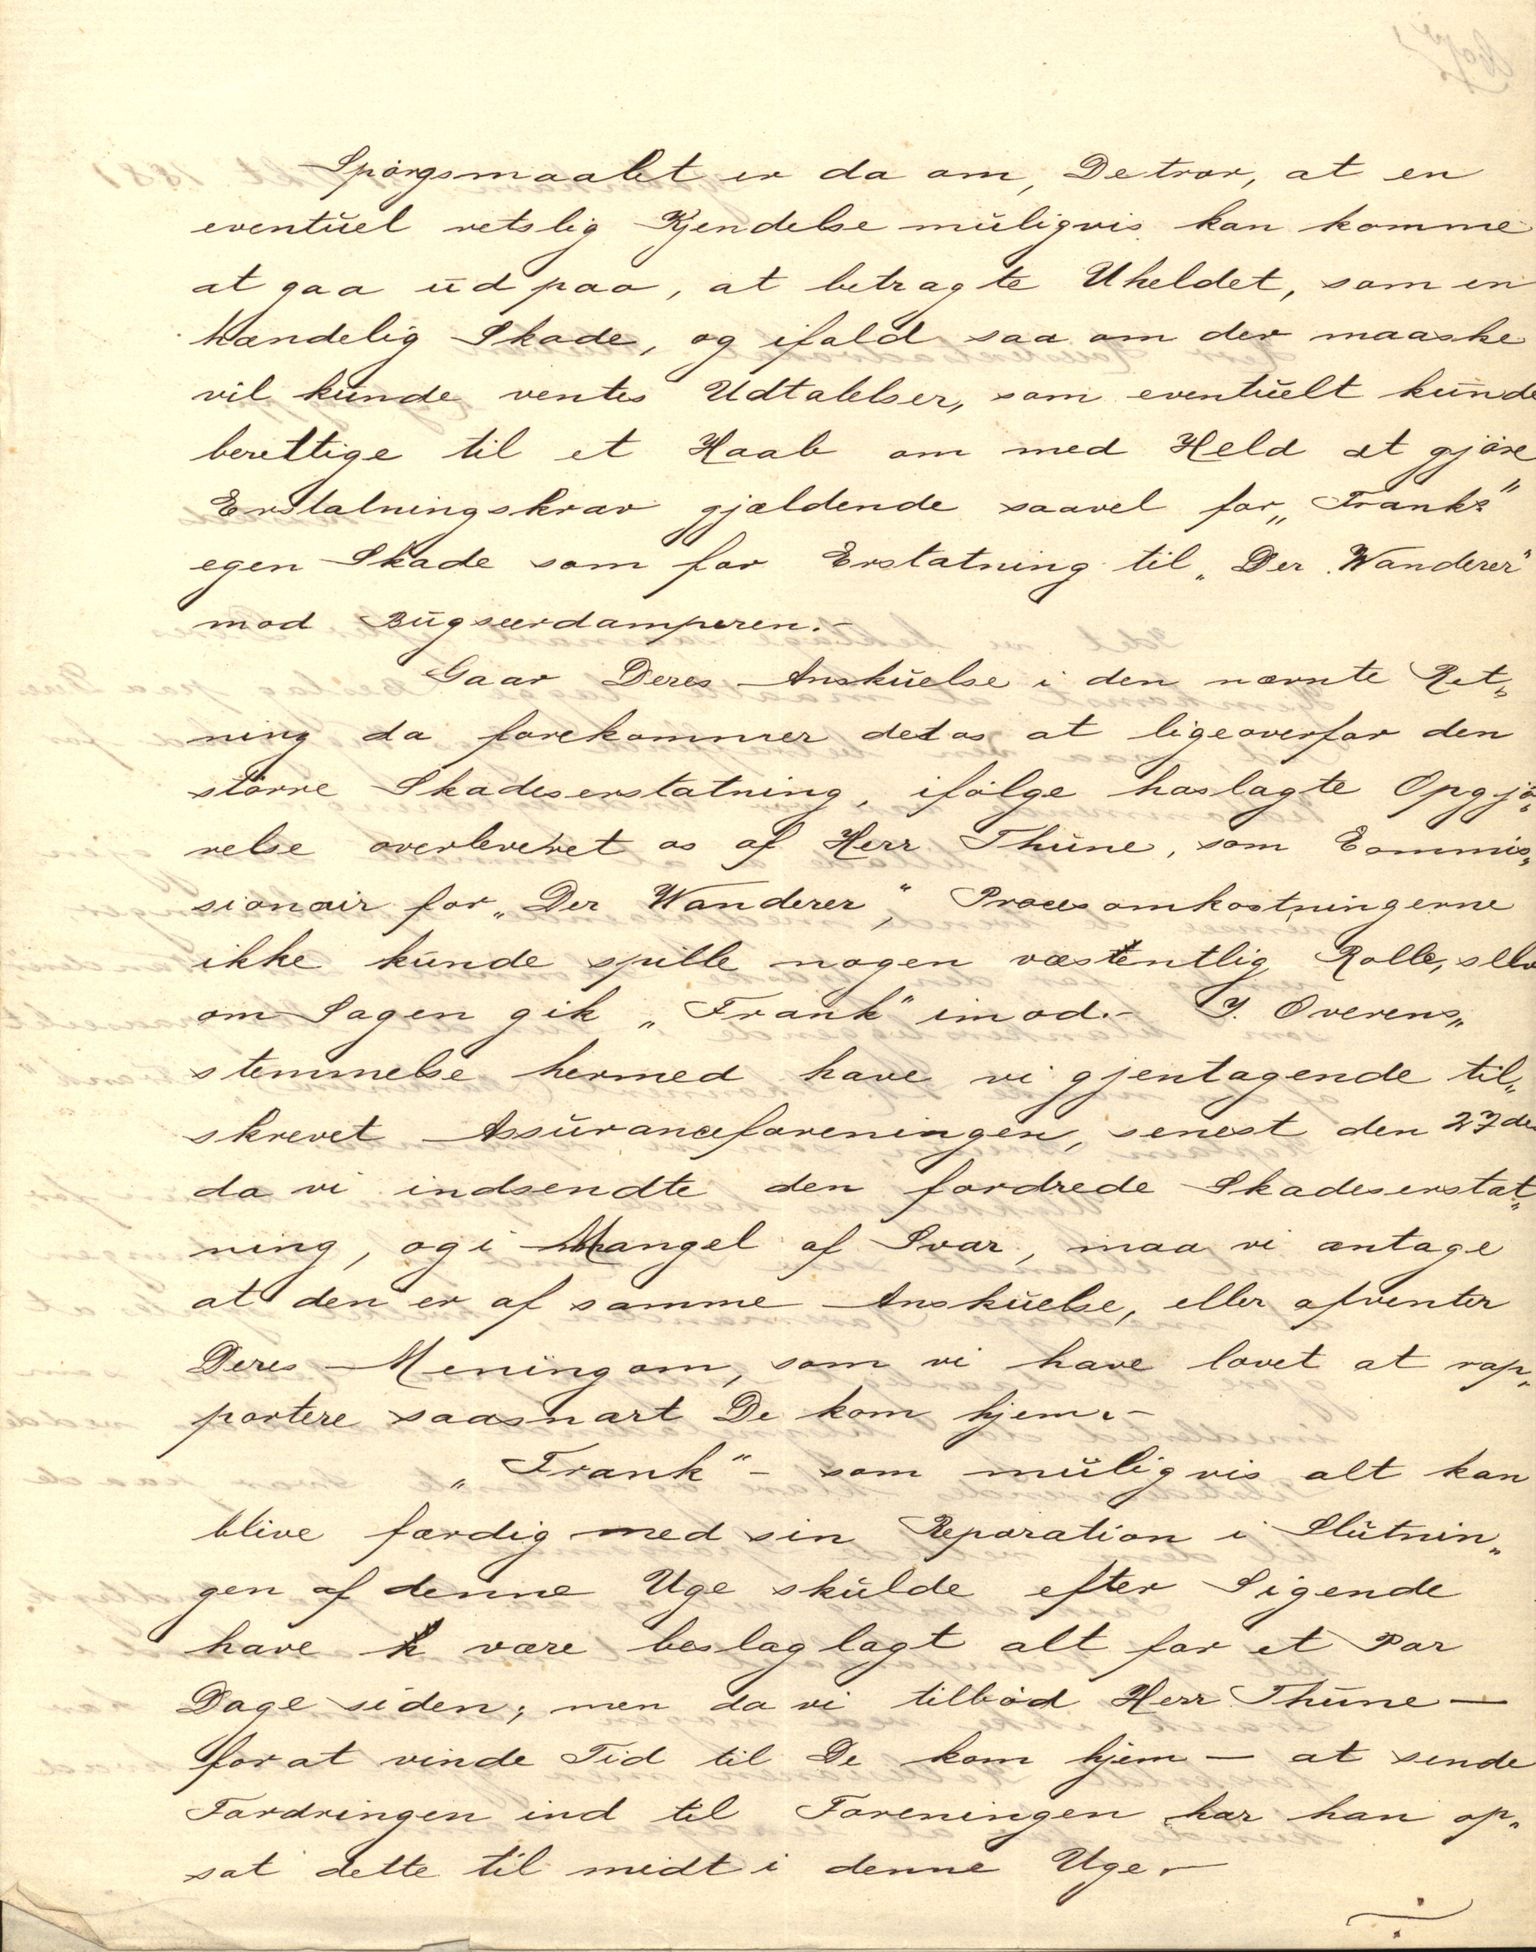 Spörgsmaalet er da om, De tror, at en
eventuel retslig Kjendelse muligvis kan komme
at gaa ud paa, at betragte Uheldet, som en
hændelig Skade, og ifald saa om der maaske
vil kunde ventes Udtalelser, som eventuelt kunde
berettige til et Haab om med Held at gjöre
Erstatningskrav gjældende saavel for „Franks"
egen Skade som for Erstatning til „Der Wanderer"
mod Bugseerdamperen.-
Gaar Deres Anskuelse i den nævnte Ret„
ning da forekommer det os at ligeoverfor den
större Skadeserstatning, ifölge haslagte Opgjö„
relse overleveret os af Herr Thune, som Commis„
sionair for „Der Wanderer", Procesomkostningerne
ikke kunde spille nogen væstentlig Rolle, selv
om Sagen gik „Frank" imod.- I. Overens„
stemmelse hermed have vi gjentagende til„
skrevet Assuranceforeningen, senest den 27de
da vi indsendte den fordrede Skadeserstat„
ning, og i Mangel af Svar, maa vi antage
at den er af samme Anskuelse, eller afventer
Deres Mening om, som vi have lovet at rap„
portere saasnart De kom hjem.-
„Frank" - som muligvis alt kan
blive færdig med sin Reparation i Slutnin„
gen af denne Uge skulde efter Sigende
have være beslaglagt alt for et Par
Dage siden; men da vi tilböd Herr Thune —
for at vinde Tid til De kom hjem — at sende
Fordringen ind til Foreningen har han op„
sat dette til midt i denne Uge.-